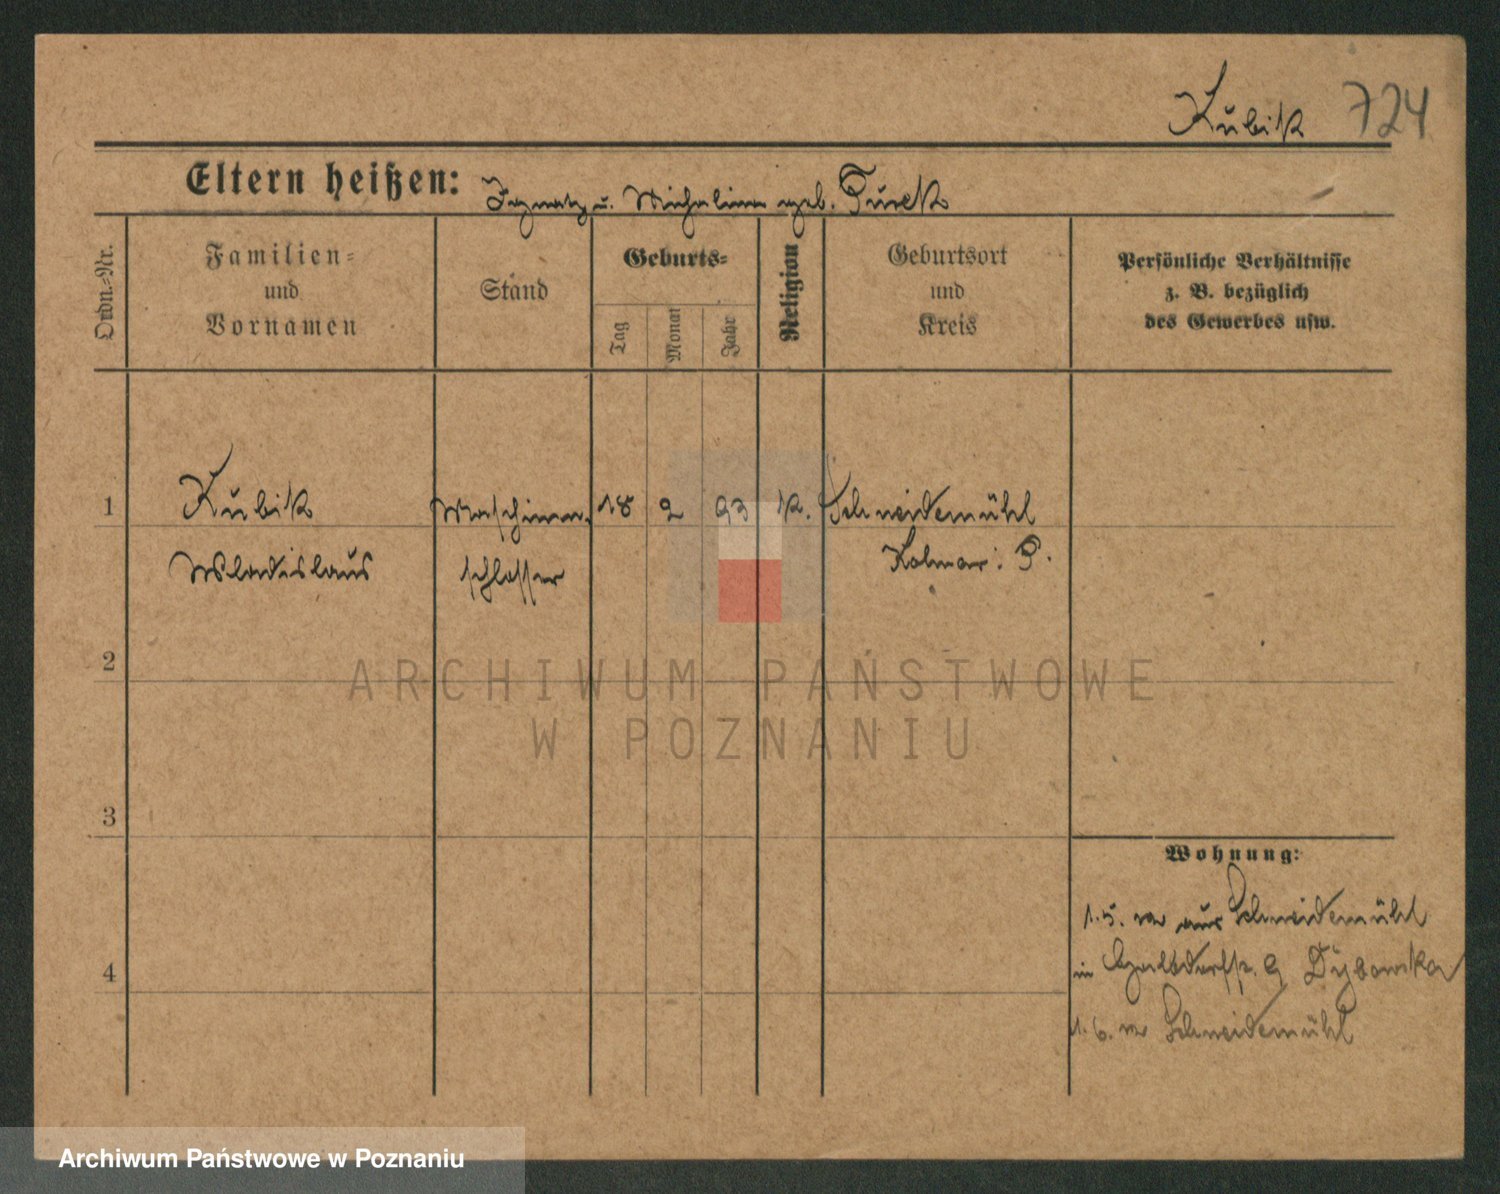 Kubik 724
Eltern heißen: Ignatz u. Michalina geb. Turek
Ordn.-Nr.
Familien-
und
Vornamen
Stand
Geburts-
Tag
Monat
Jahr
Religion
Geburtsort
und
Kreis
Persönliche Verhältnisse
z. B. bezüglich
des Gewerbes usw.
1 Kubik Maschinen- 18 2 93 k. Schneidemühl
Wladislaus schlosser Kolmar i. P.
2
ARCHIWUM PAŃSTWOWE
W POZNANIU
3
Wohnung:
1.5. aus Schneidemühl
in 9 Dybowska
4
1.6. Schneidemühl
Archiwum Państwowe w Poznaniu